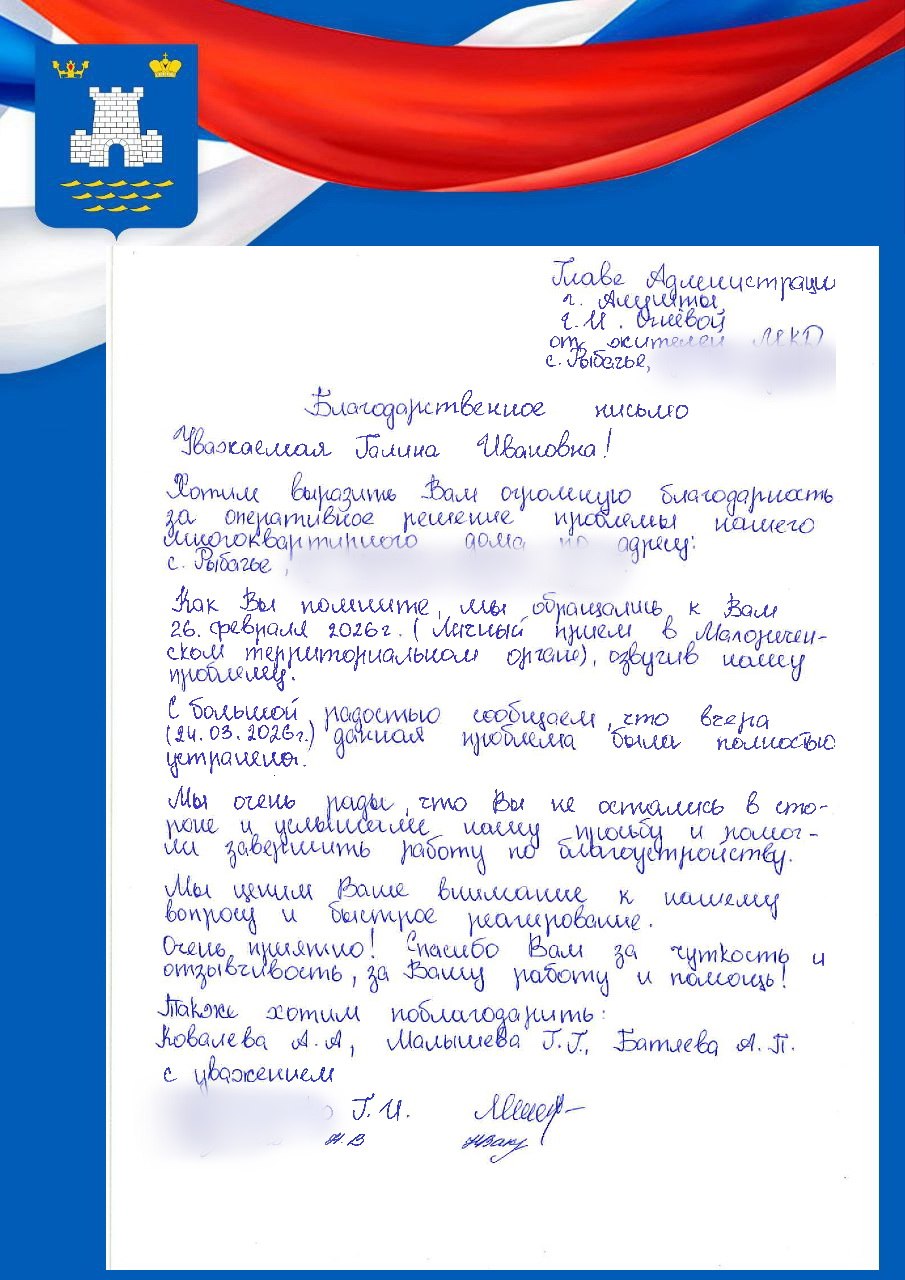 Главе Администрации
г. Алушты
Г.И. Огнёвой
от жителей МКД
с. Рыбачье,
Благодарственное письмо
Уважаемая Галина Ивановна!
Хотим выразить Вам огромную благодарность
за оперативное решение проблемы нашего
многоквартирного дома по адресу:
с. Рыбачье,
Как Вы помните, мы обращались к Вам
26. февраля 2026г. (Личный прием в Малоречен-
ском территориальном органе), озвучив нашу
проблему.
С большой радостью сообщаем, что вчера
(24.03.2026г.) данная проблема была полностью
устранена.
Мы очень рады, что Вы не остались в сто-
роне и услышали нашу просьбу и помог-
ли завершить работу по благоустройству.
Мы ценим Ваше внимание к нашему
вопросу и быстрое реагирование.
Очень приятно! Спасибо Вам за чуткость и
отзывчивость, за Вашу работу и помощь!
Также хотим поблагодарить:
Ковалева А.А, Малышева Г.Г., Батлева А.П.
с уважением
Г.И.
Н.В